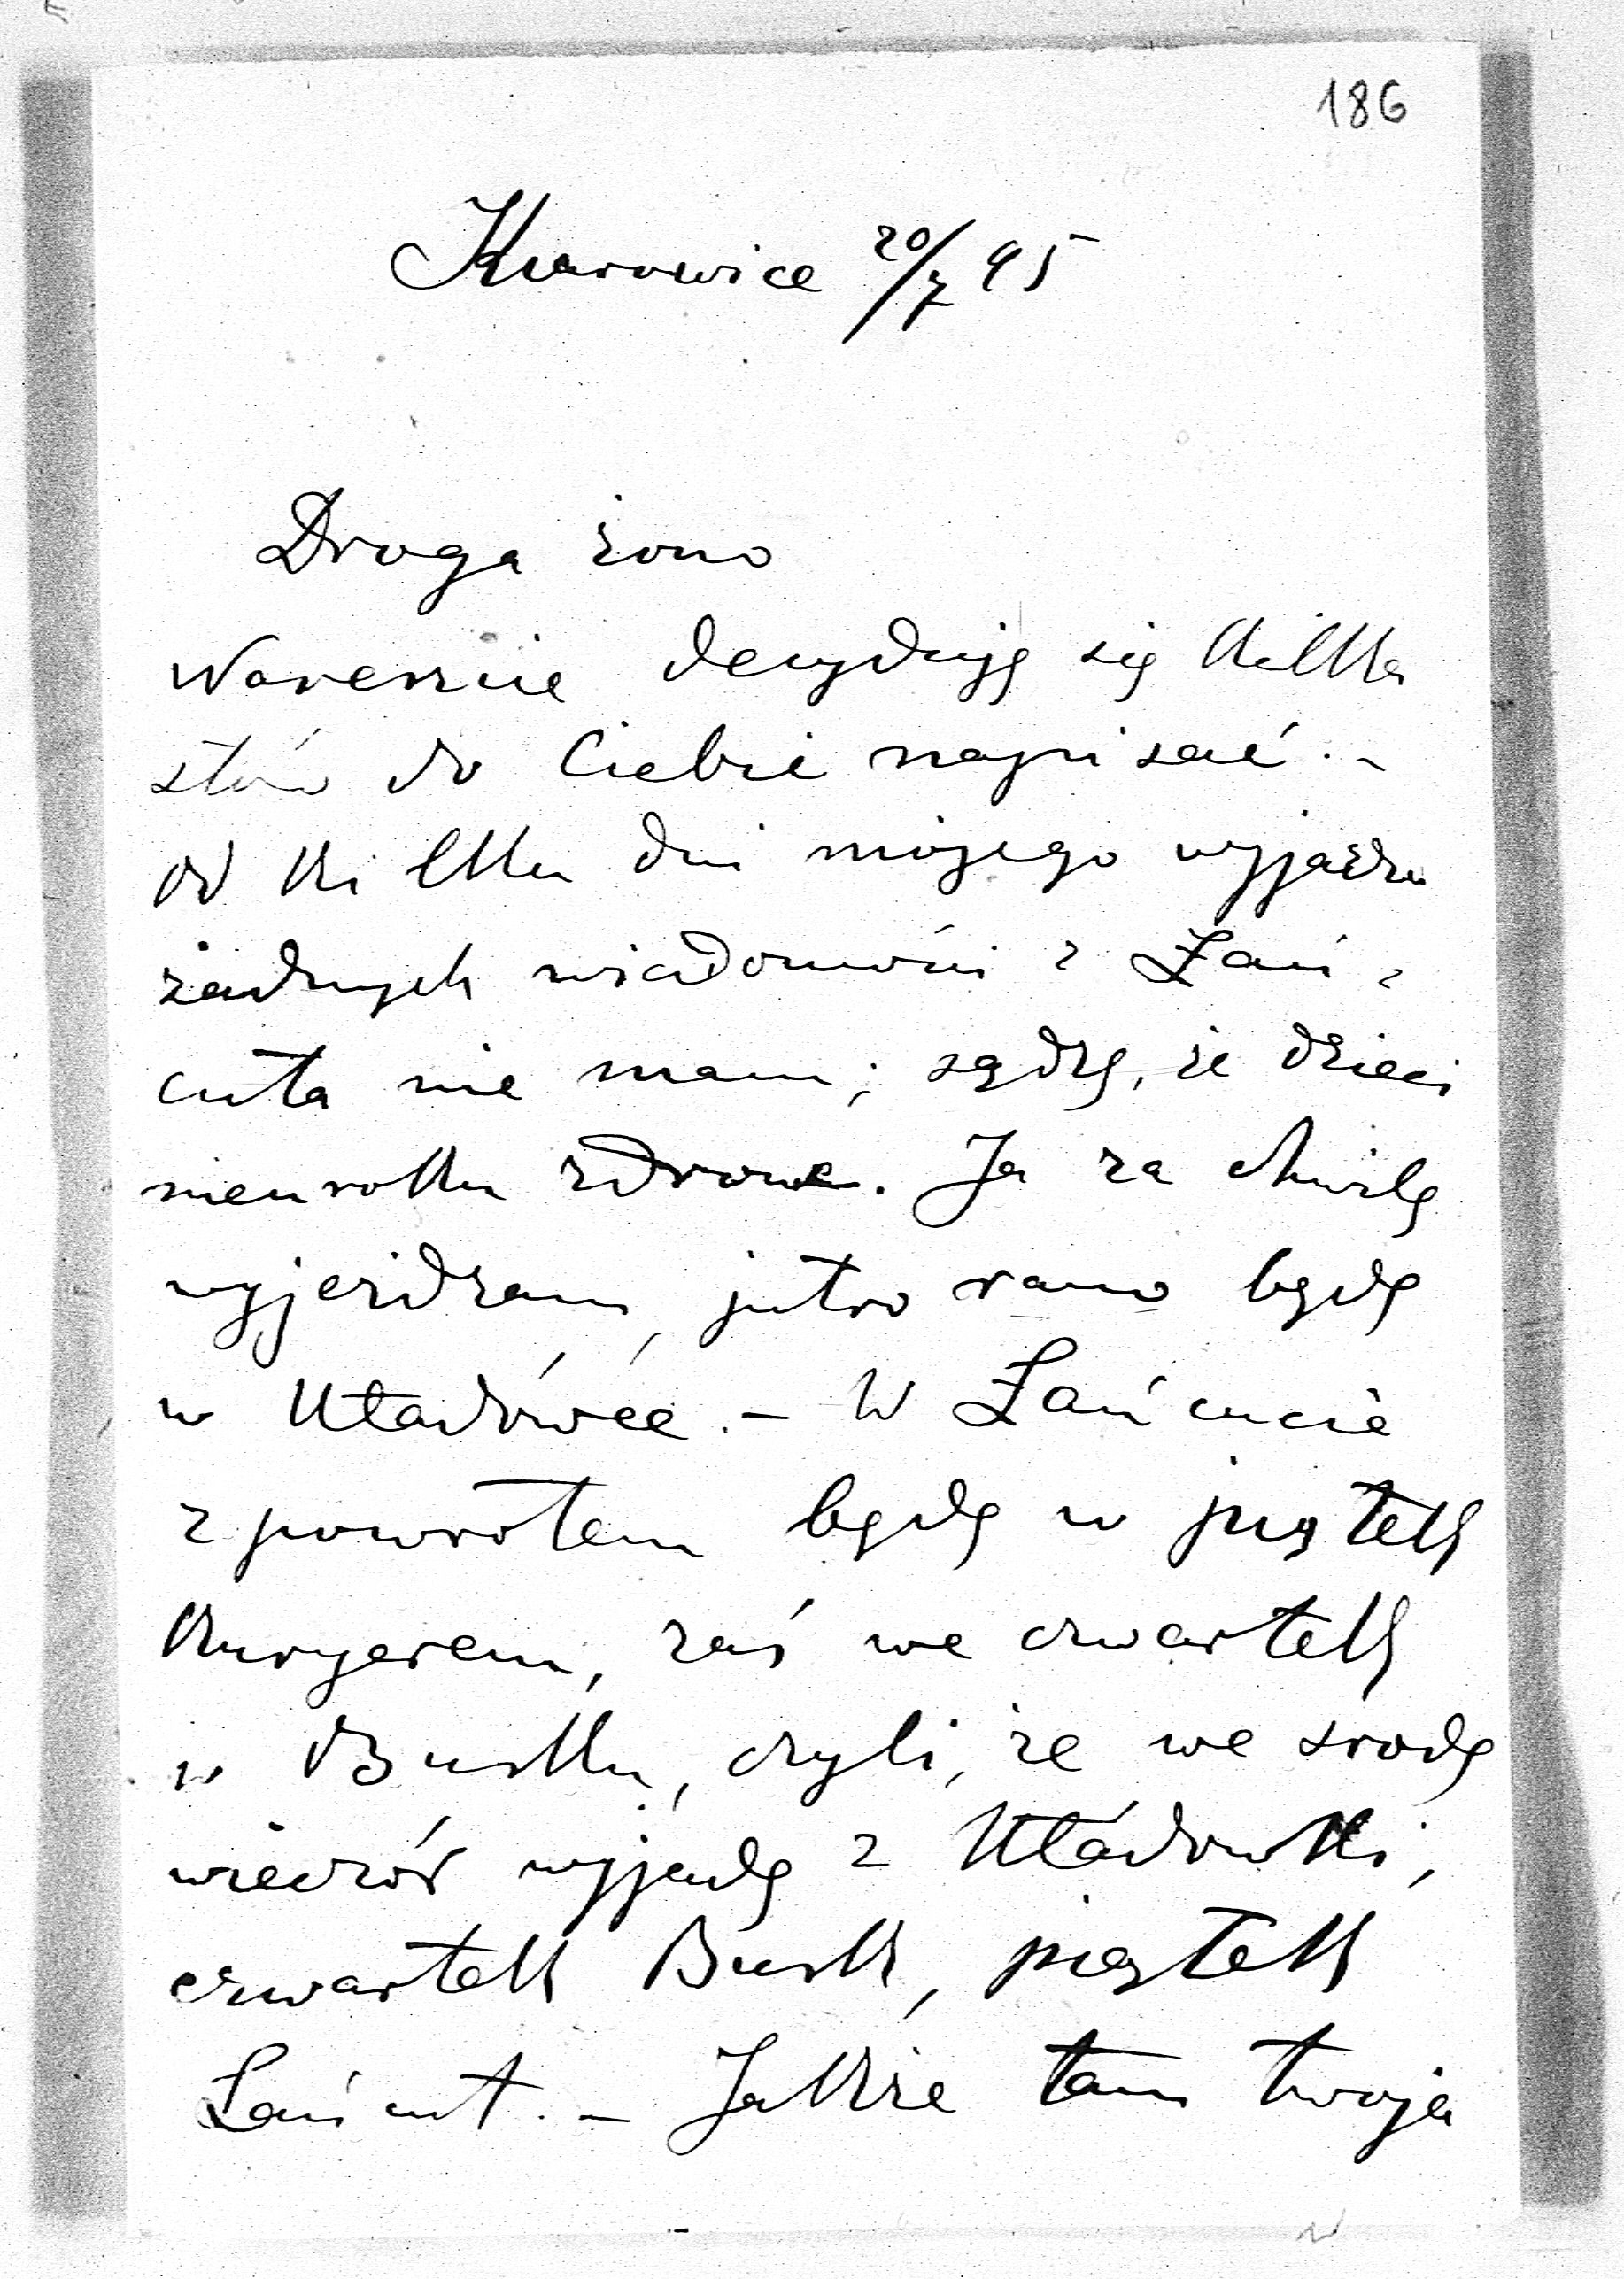 186
Kurowice 20/7 95
Droga żono
Nareszcie decyduję się kilka
słów do Ciebie napisać. –
od kilku dni mojego wyjazdu
żadnych wiadomości z Łań-
cuta nie mam; sądzę, że dzieci
nieuroku zdrowe. Ja za chwilę
wyjeżdżam, jutro rano będę
w Uładówce. – W Łańcucie
z powrotem będę w piątek
kuryerem, zaś we czwartek
w Busku, czyli, że we środę
wieczór wyjadę z Uładówki,
czwartek Busk, piątek
Łańcut. – Jakże tam twoja